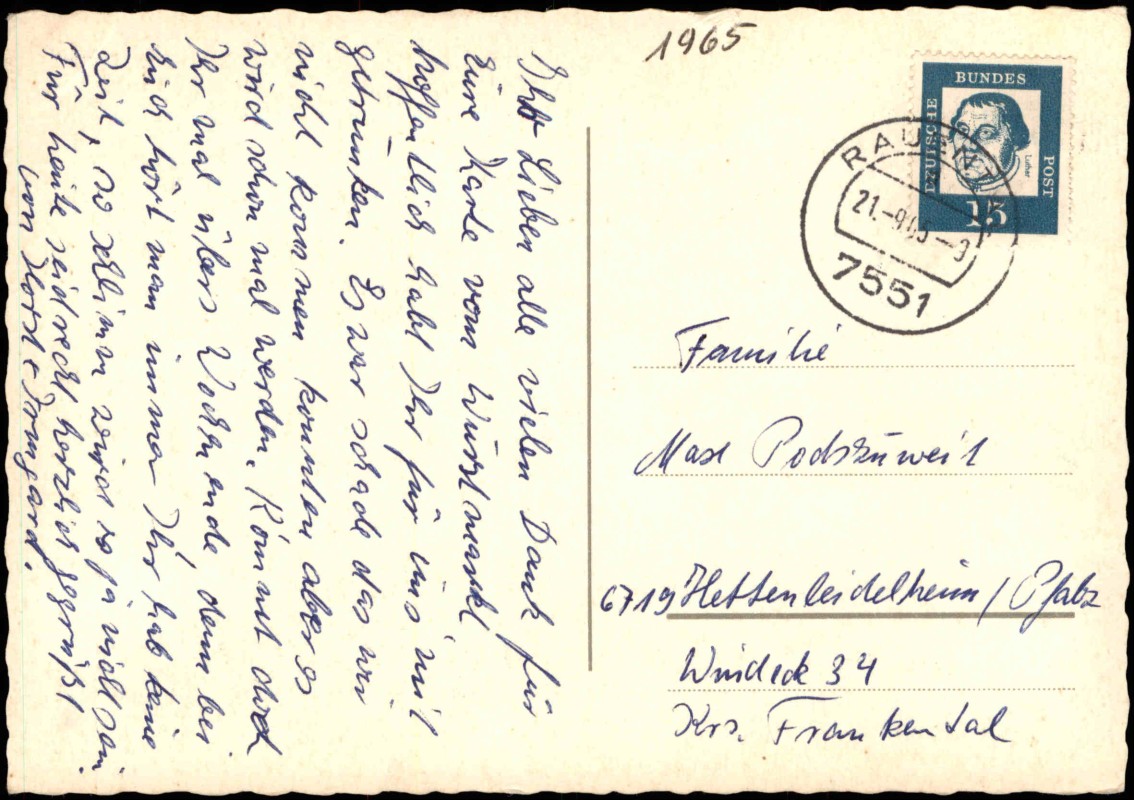 Ihr Lieben alle vielen Dank für
Eure Karte vom Wurstmarkt
hoffentlich habt Ihr für uns mit
getrunken. Es war schade das wir
nicht kommen konnten aber es
wird schon mal werden. Kommt doch
Ihr mal übers Wochenende denn bei
Euch hört man immer Ihr hab keine
Zeit, so schlimm wirds ja nicht sein.
Für heute seid recht herzlich gegrüßt
von Horst + Irmgard.
1965
DEUTSCHE
BUNDES
POST
Luther
15
21.-9.65-9
7551
Familie
Max Podszuweit
6719 Hettenleidelheim / Pfalz
Windeck 34
Krs. Frankental